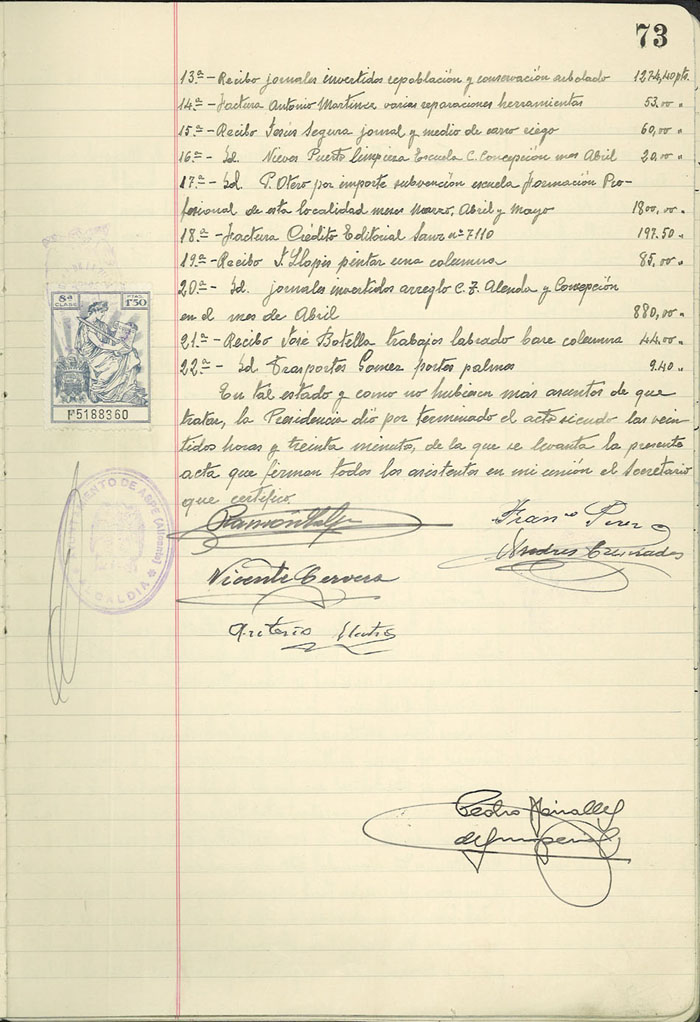 73
13ª - Recibo jornales invertidos repoblación y conservación arbolado 1274,40 pts.
14ª - Factura Antonio Martínez varias reparaciones herramientas 53,00 "
15ª - Recibo Jesús Segura jornal y medio de carro riego 60,00 "
16ª - Id. Nieves Puerto limpieza Escuela C. Concepción mes Abril 20,00 "
17ª - Id. P. Otero por importe subvención escuela Formación Pro-
fesional de esta localidad meses Marzo, Abril y Mayo 1800,00 "
18ª - Factura Crédito Editorial Sanz nº 7110 197.50 "
19ª - Recibo J. Llopis pintar una columna 85,00 "
20ª - Id. jornales invertidos arreglo C. J. Alenda y Concepción
en el mes de Abril 880,00 "
21ª - Recibo José Botella trabajos labrado base columna 44,00 "
22ª - Id Trasportes Gomez portes palmas 9.40 "
En tal estado y como no hubiesen más asuntos de que
tratar, la Presidencia dió por terminado el acto siendo las vein-
tidos horas y treinta minutos, de la que se levanta la presente
acta que firman todos los asistentes en mi unión el Secretario
que certifico.
8ª CLASE PTAS 1'50
F5188360
AYUNTAMIENTO DE ASPE (Alicante)
ALCALDIA
Ramón
Franco Perez
Andres Cremades
Vicente Cervera
Pedro